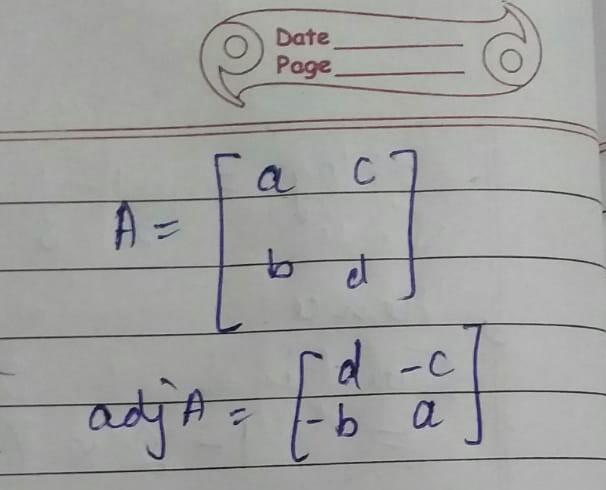 Date
Page
A = [ a c
b d ]
adj A = [ d -c
-b a ]